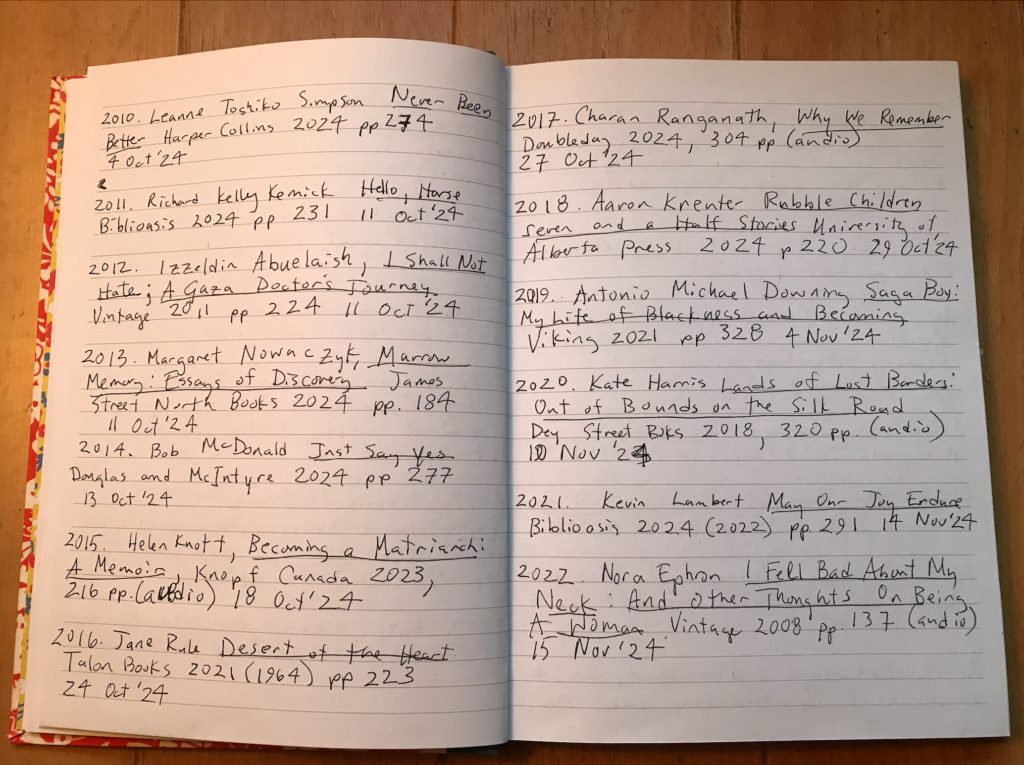 2010. Leanne Toshiko Simpson Never Been
Better Harper Collins 2024 pp 274
4 Oct '24
2011. Richard Kelly Kemick Hello, Horse
Biblioasis 2024 pp 231 11 Oct '24
2012. Izzeldin Abuelaish, I Shall Not
Hate; A Gaza Doctor's Journey
Vintage 2011 pp 224 11 Oct '24
2013. Margaret Nowaczyk, Marrow
Memory: Essays of Discovery James
Street North Books 2024 pp. 184
11 Oct '24
2014. Bob McDonald Just Say Yes
Douglas and McIntyre 2024 pp 277
13 Oct '24
2015. Helen Knott, Becoming a Matriarch:
A Memoir, Knopf Canada 2023,
216 pp. (audio) 18 Oct '24
2016. Jane Rule Desert of the Heart
Talon Books 2021 (1964) pp 223
24 Oct '24
2017. Charan Ranganath, Why We Remember
Doubleday 2024, 304 pp (audio)
27 Oct '24
2018. Aaron Kreuter Rubble Children
seven and a Half Stories University of
Alberta Press 2024 p 220 29 Oct '24
2019. Antonio Michael Downing Saga Boy:
My Life of Blackness and Becoming
Viking 2021 pp 328 4 Nov '24
2020. Kate Harris Lands of Lost Borders:
Out of Bounds on the Silk Road
Dey Street Boks 2018, 320 pp. (audio)
10 Nov '24
2021. Kevin Lambert May Our Joy Endure
Biblioasis 2024 (2022) pp. 291 14 Nov '24
2022. Nora Ephron I Fell Bad About My
Neck: And Other Thoughts On Being
A Woman Vintage 2008 pp. 137 (audio)
15 Nov '24